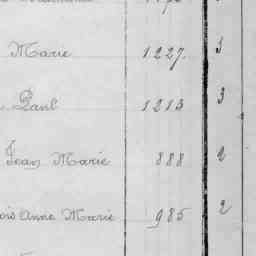 Marie 1227. 1
Paul 1213 3
Jean Marie 888 2
Anne Marie 985 2